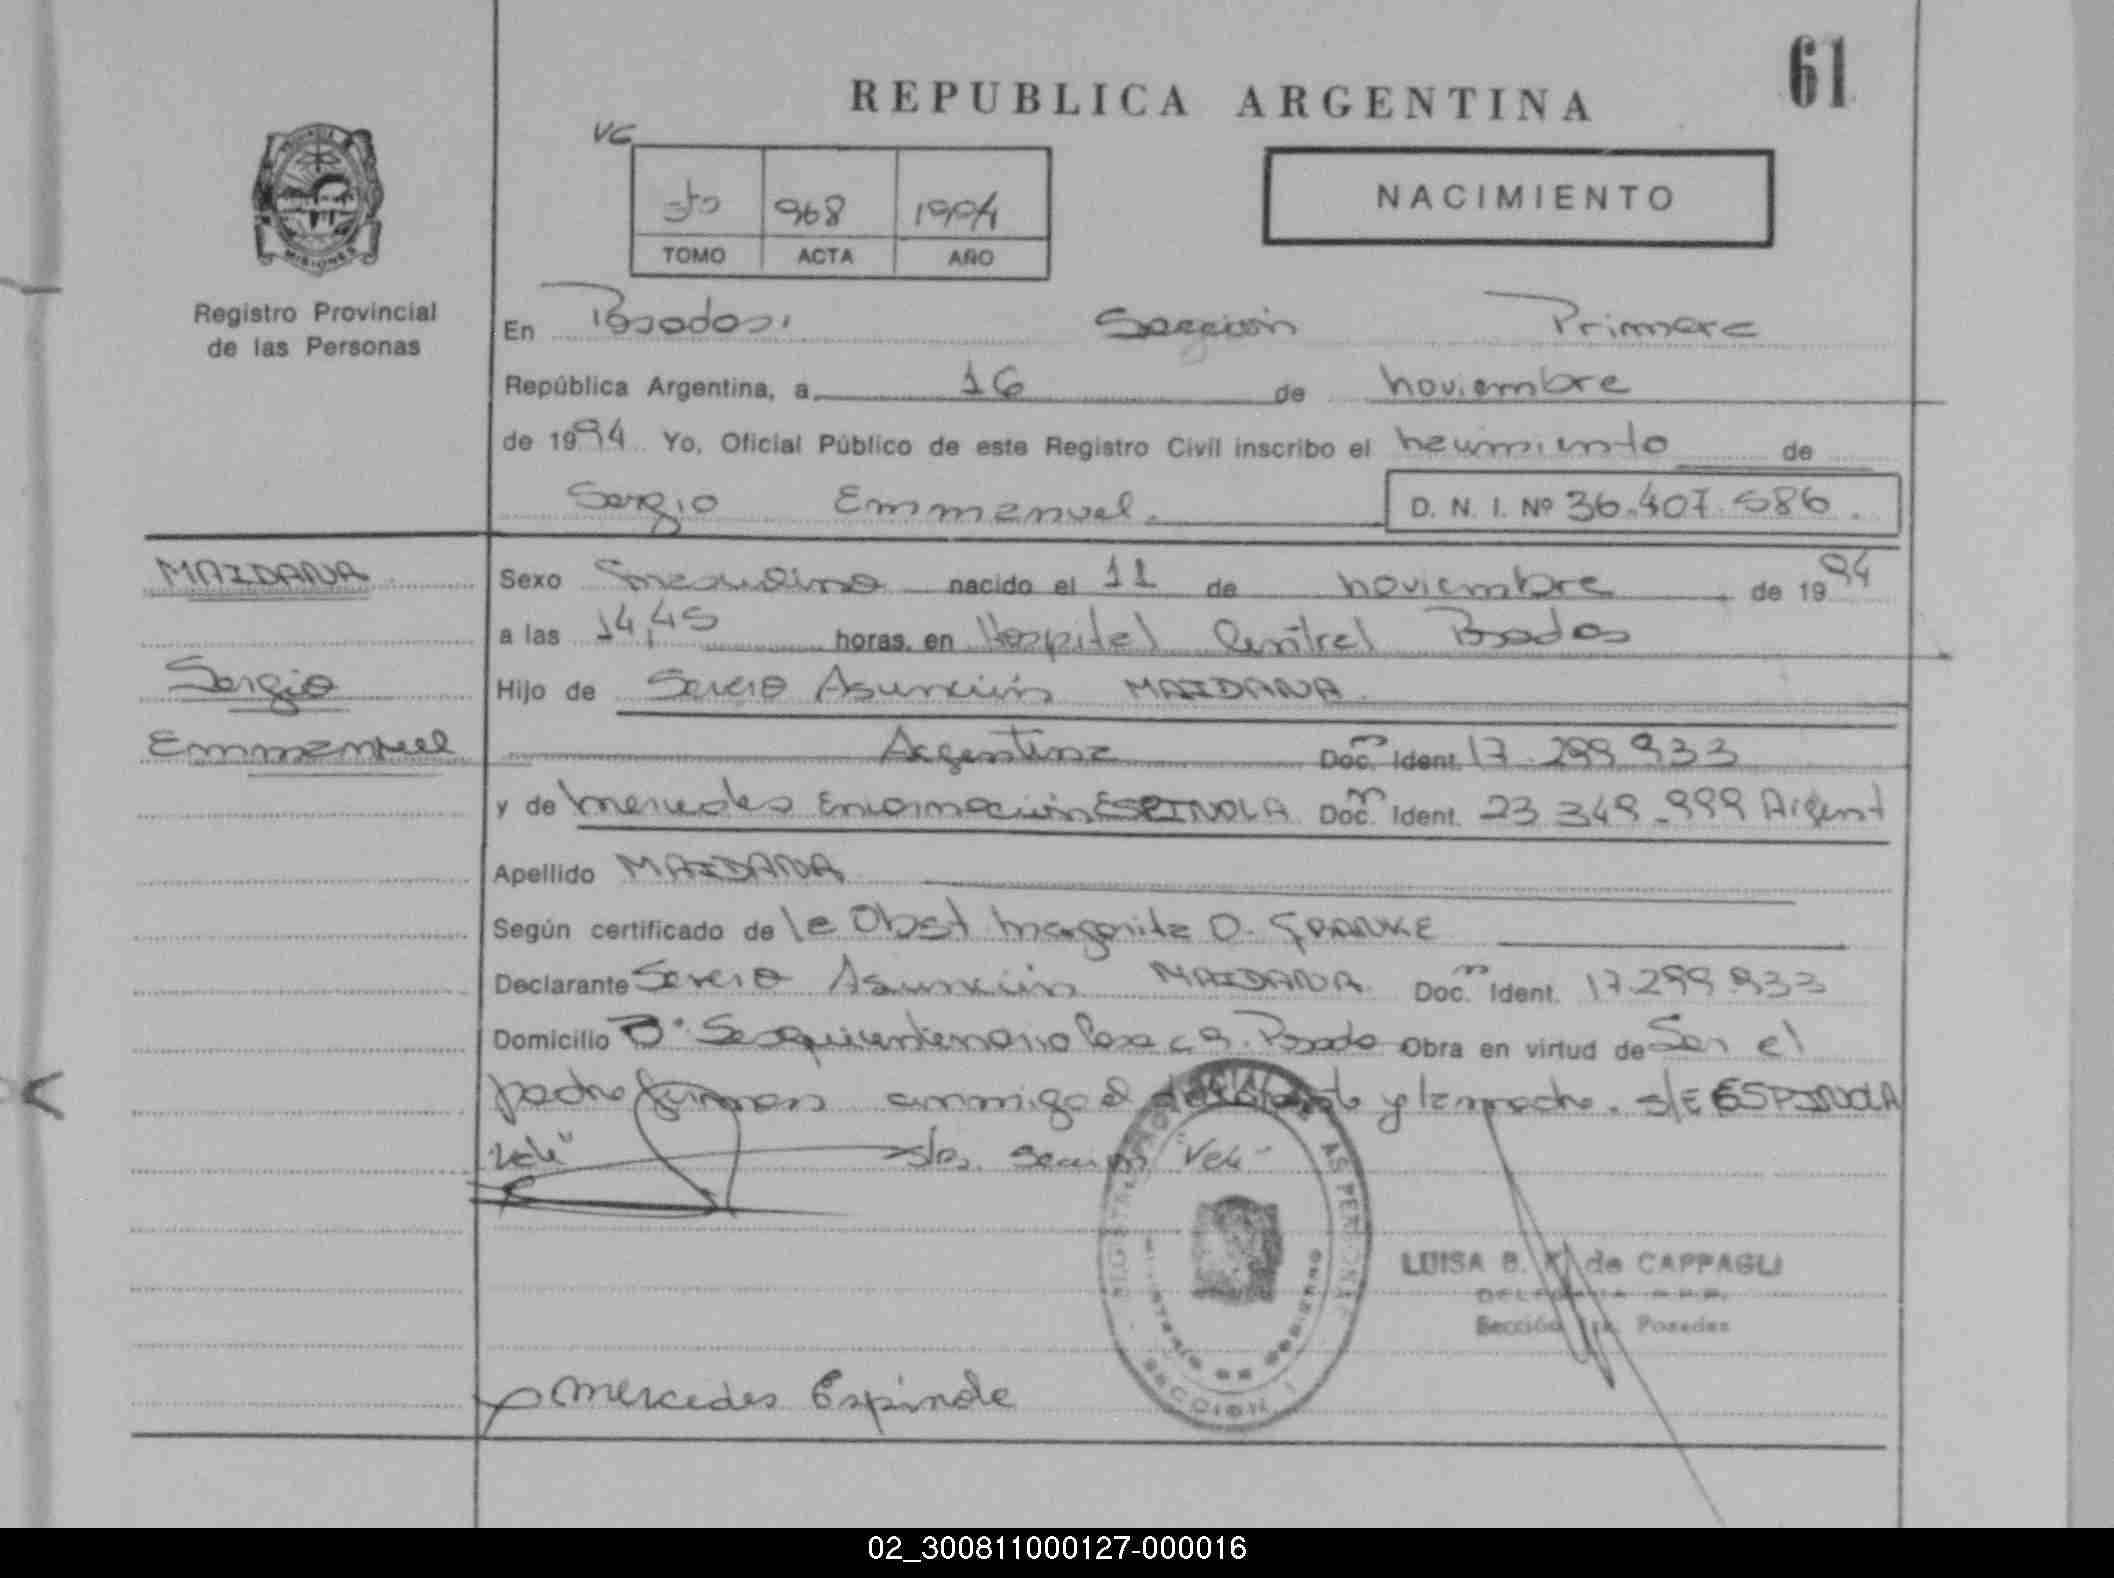 61
REPUBLICA ARGENTINA
VC
5to 968 1994
TOMO ACTA AÑO
NACIMIENTO
MISIONES
Registro Provincial
de las Personas
En Posadas, Sección Primera
República Argentina, a 16 de noviembre
de 1994 Yo, Oficial Público de este Registro Civil inscribo el nacimiento de
Sergio Emmanuel. D. N. I. Nº 36.407.586.
MAIDANA
Sexo masculino nacido el 11 de noviembre de 1994
a las 14,45 horas. en Hospital Central Posadas
Sergio
Hijo de Severo Asunción MAIDANA
Emmanuel
Argentina Doc. Ident. 17.299.933
y de Mercedes Encarnación ESPINOLA Doc. Ident. 23.349.999 Argent
Apellido MAIDANA
Según certificado de la Obst Margarita D.
Declarante Severo Asunción MAIDANA Doc. Ident. 17.299.933
Domicilio B° Sesquicentenario Casa Posadas Obra en virtud de Ser el
padre firman conmigo el declarante y la madre. s/E ESPINOLA
"Vale" s/ Sección "Vale"
LUISA B. de CAPPAGLI
DELEGADA R.P.P.
Sección 1ra. Posadas
MINISTERIO DE GOBIERNO
SECCION 1
Mercedes Espinola
02_300811000127-000016